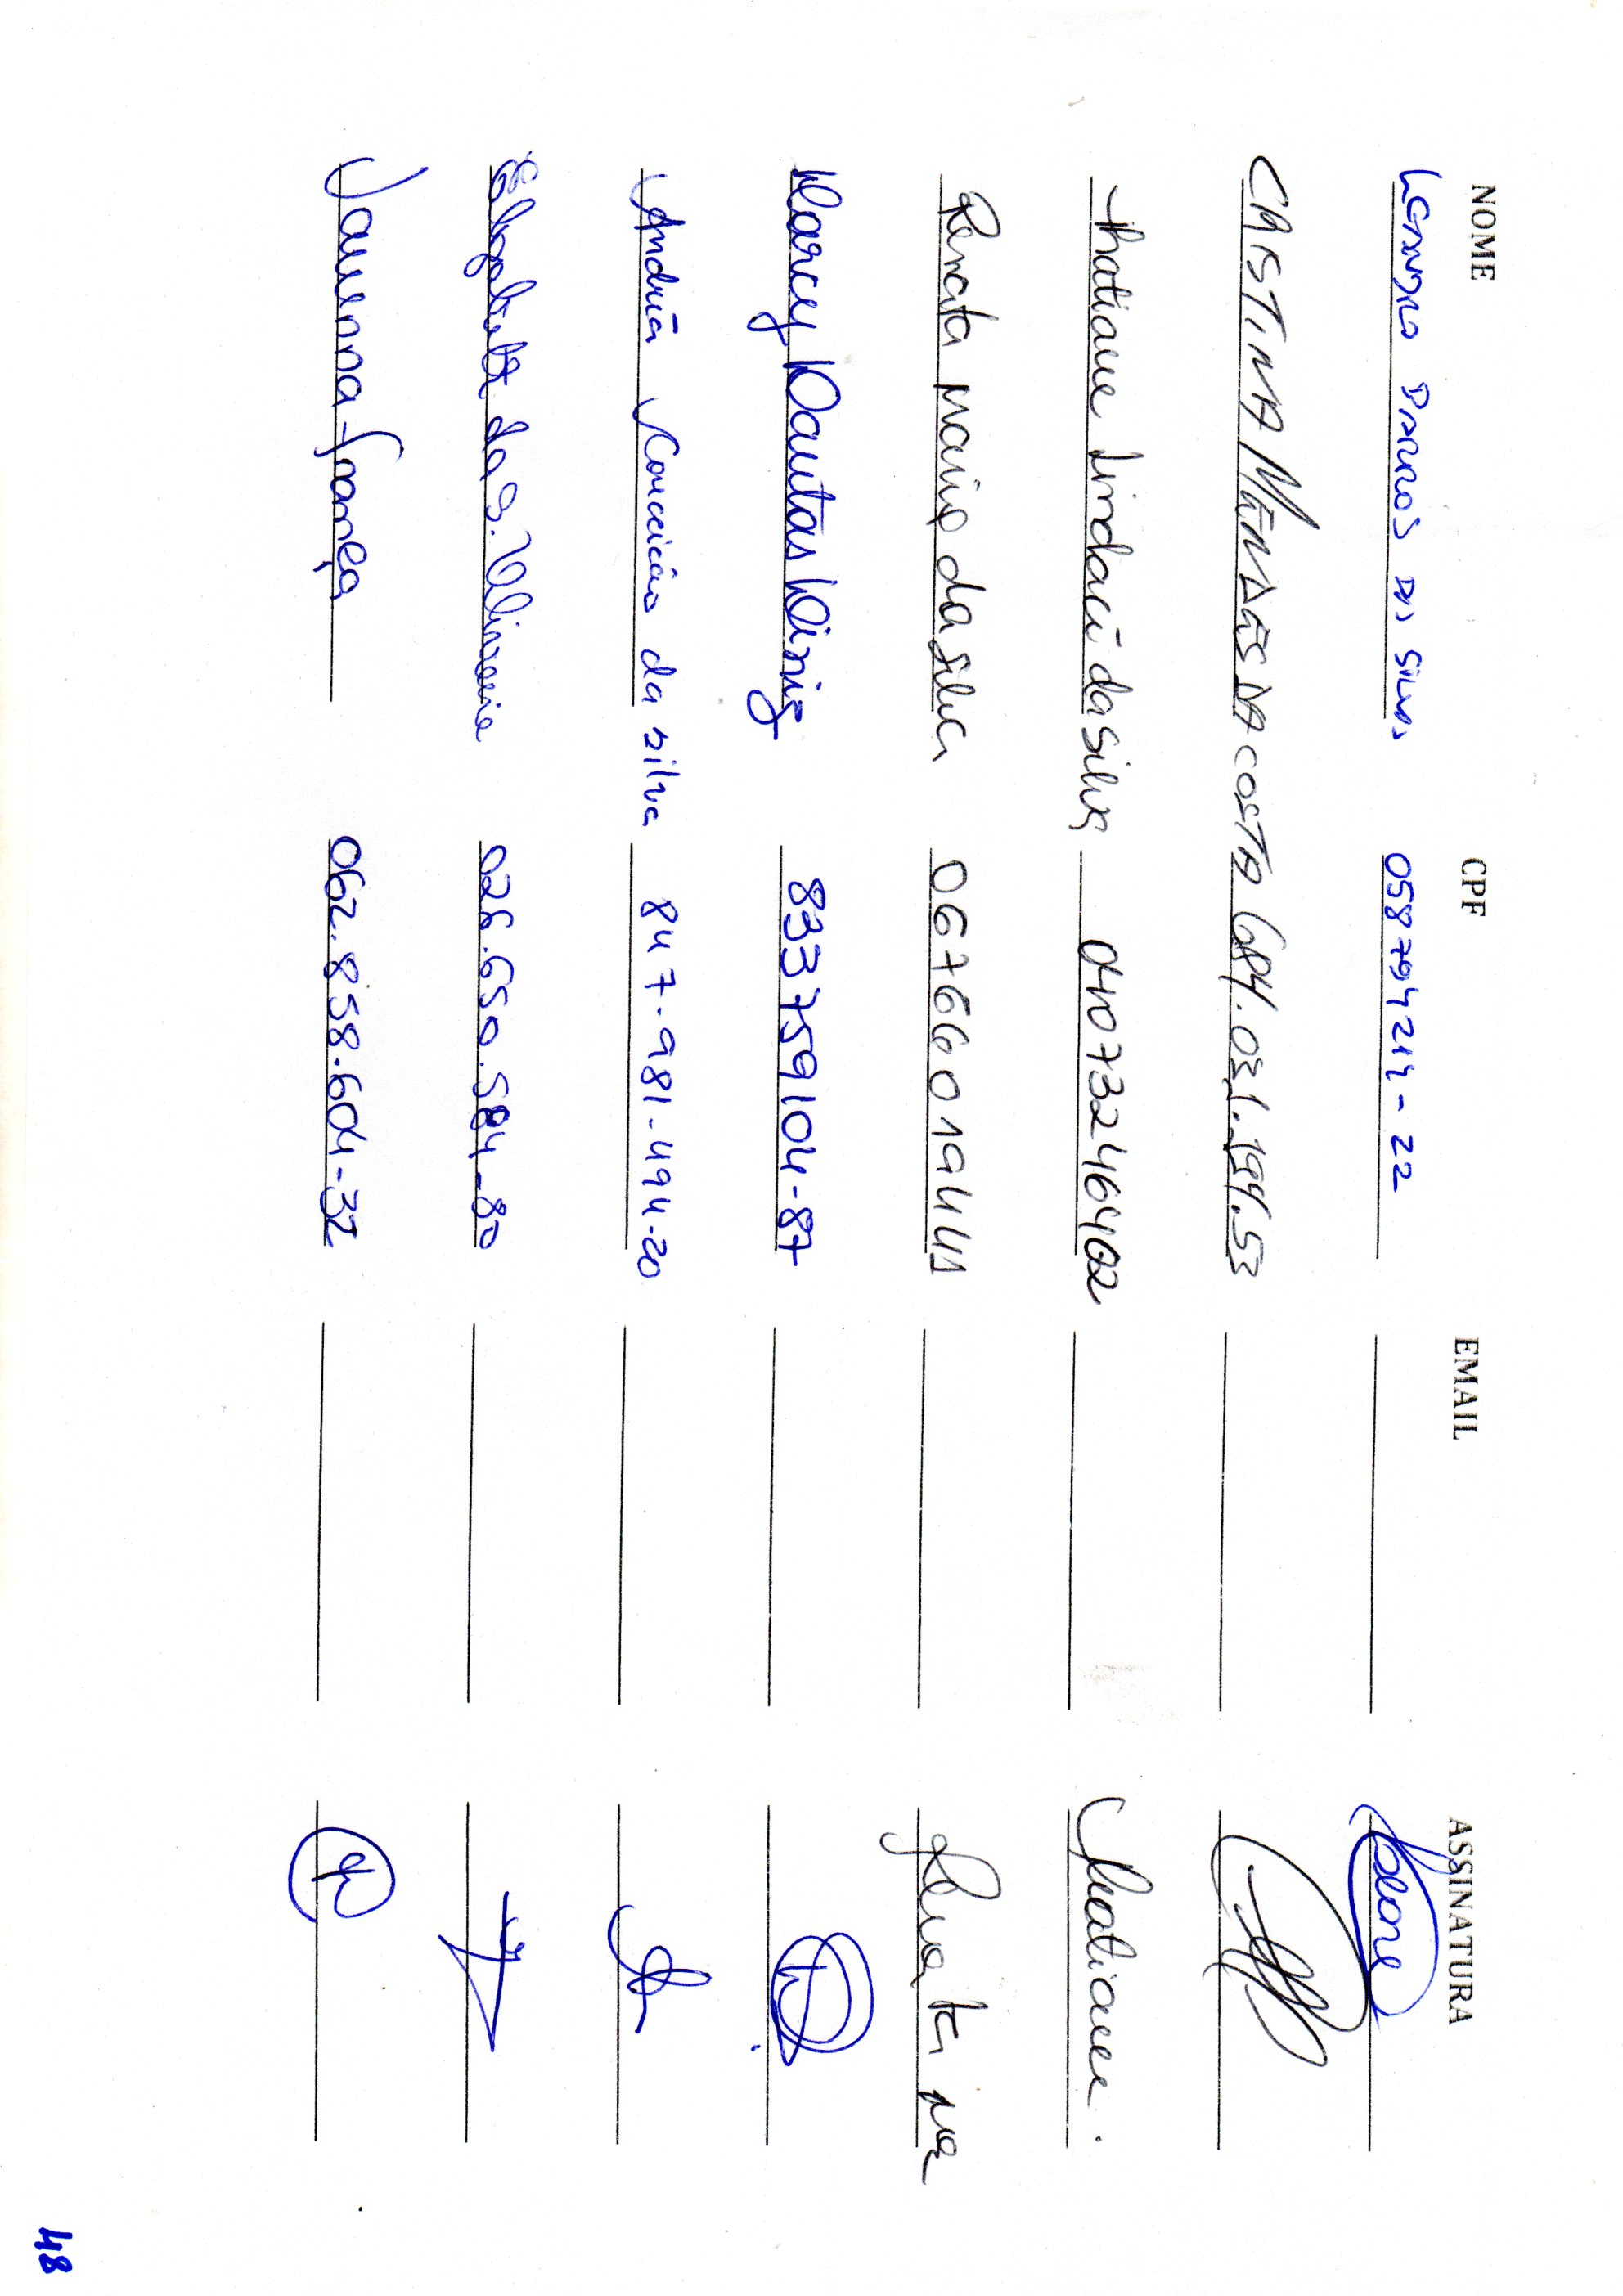 NOME CPF EMAIL ASSINATURA
Leandro Barros da Silva 058794214-22
CRISTINA MENDES DA COSTA 684.031.194.53
thatiane Lindaci da Silva 04073246402 thatiane.
Renata maria da silva 06766019441 Renata ma
Darcy Dantas Diniz 833759104-87
Andréa Conceição da silva 847-981-494-20
Elizabete da S. Oliveira 026.650.584-80
Janinna França 062.858.604-32
48